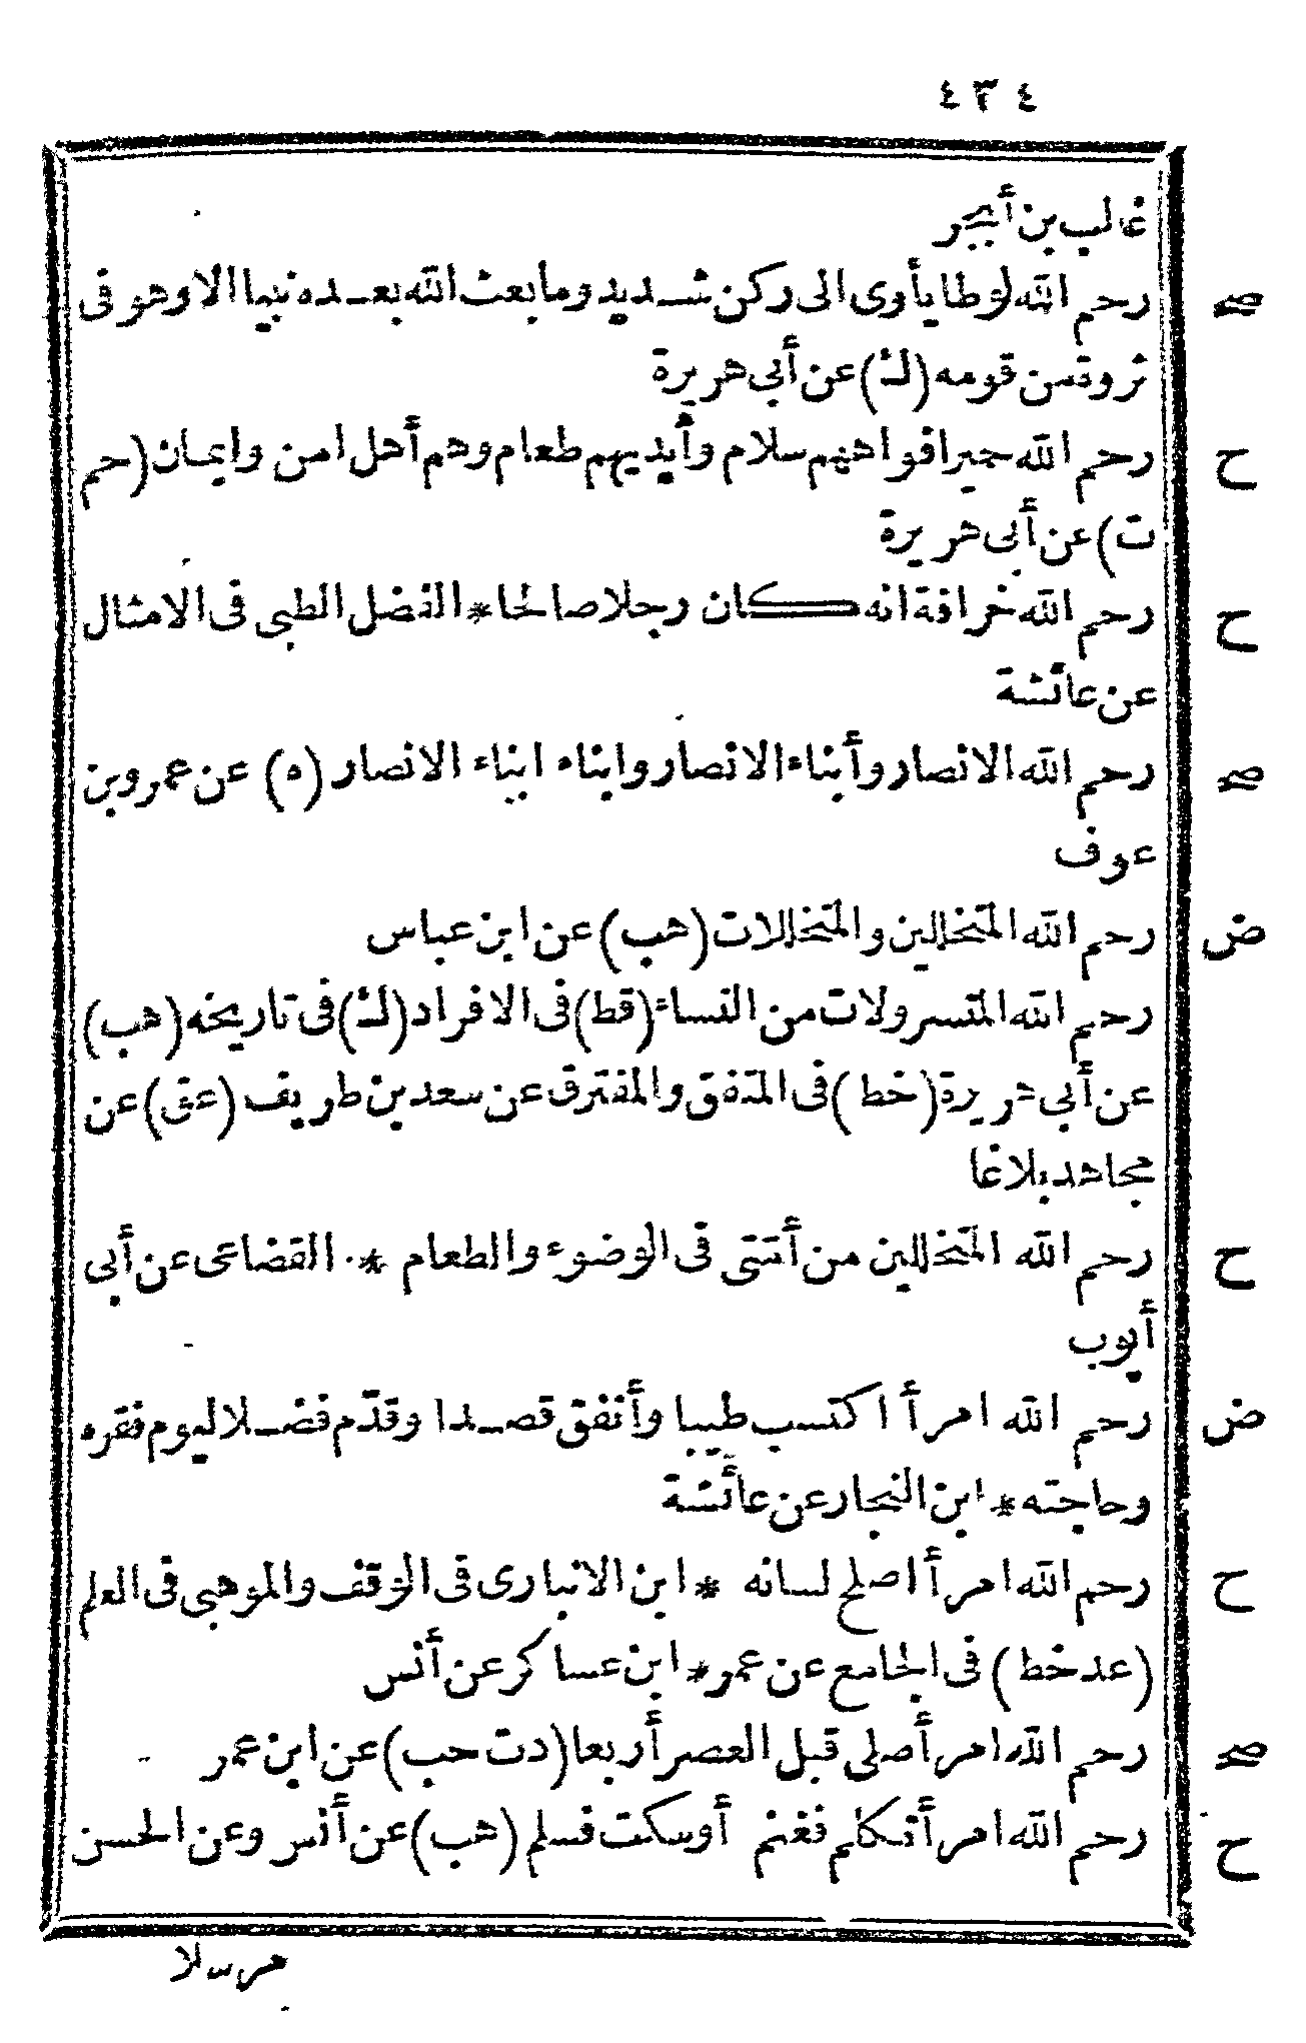 ٤٣٤
غالب بن أبجر
صح رحم الله لوطا يأوى الى ركن شديد وما بعث الله بعده نبيا الا وهو فى
ثروة من قومه (ك) عن أبى هريرة
ح رحم الله حميرا فواههم سلام وأيديهم طعام وهم أهل امن وايمان (حم
ت) عن أبى هريرة
ح رحم الله خرافة انه كان رجلا صالحا * الفضل الطبى فى الامثال
عن عائشة
صح رحم الله الانصار وأبناء الانصار وابناء ابناء الانصار (ه) عن عمرو بن
عوف
ض رحم الله المتخللين والمتخللات (هب) عن ابن عباس
رحم الله المتسرولات من النساء (قط) فى الافراد (ك) فى تاريخه (هب)
عن أبى هريرة (خط) فى المتفق والمفترق عن سعد بن طريف (عق) عن
مجاهد بلاغا
ح رحم الله المتخللين من أمتى فى الوضوء والطعام * القضاعى عن أبى
أيوب
ض رحم الله امرأ اكتسب طيبا وأنفق قصدا وقدّم فضلا ليوم فقره
وحاجته * ابن النجار عن عائشة
ح رحم الله امرأ اصلح لسانه * ابن الانبارى فى الوقف والموهبى فى العلم
(عد خط) فى الجامع عن عمر * ابن عساكر عن أنس
صح رحم الله امرأ صلى قبل العصر أربعا (دت حب) عن ابن عمر
ح رحم الله امرأ تكلم فغنم أو سكت فسلم (هب) عن أنس وعن الحسن
مرسلا